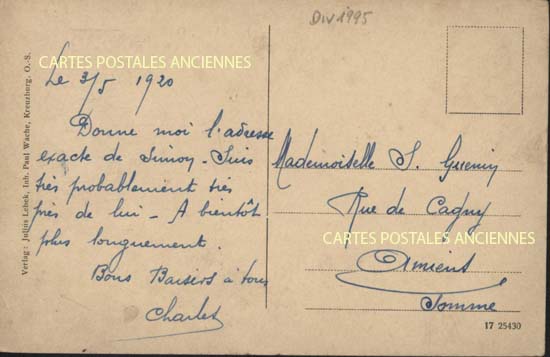 Div 1995
CARTES POSTALES ANCIENNES
Le 3/5 1920
Donne moi l'adresse
exacte de Simon - Suis
très probablement très
près de lui - A bientôt
plus longuement.
Bons Baisers à tous
Charles
Mademoiselle S. Guenin
Rue de Cagny
CARTES POSTALES ANCIENNES
Amiens
Somme
Verlag: Julius Lebek, Inh. Paul Wache, Kreuzburg, O.-S.
17 25430